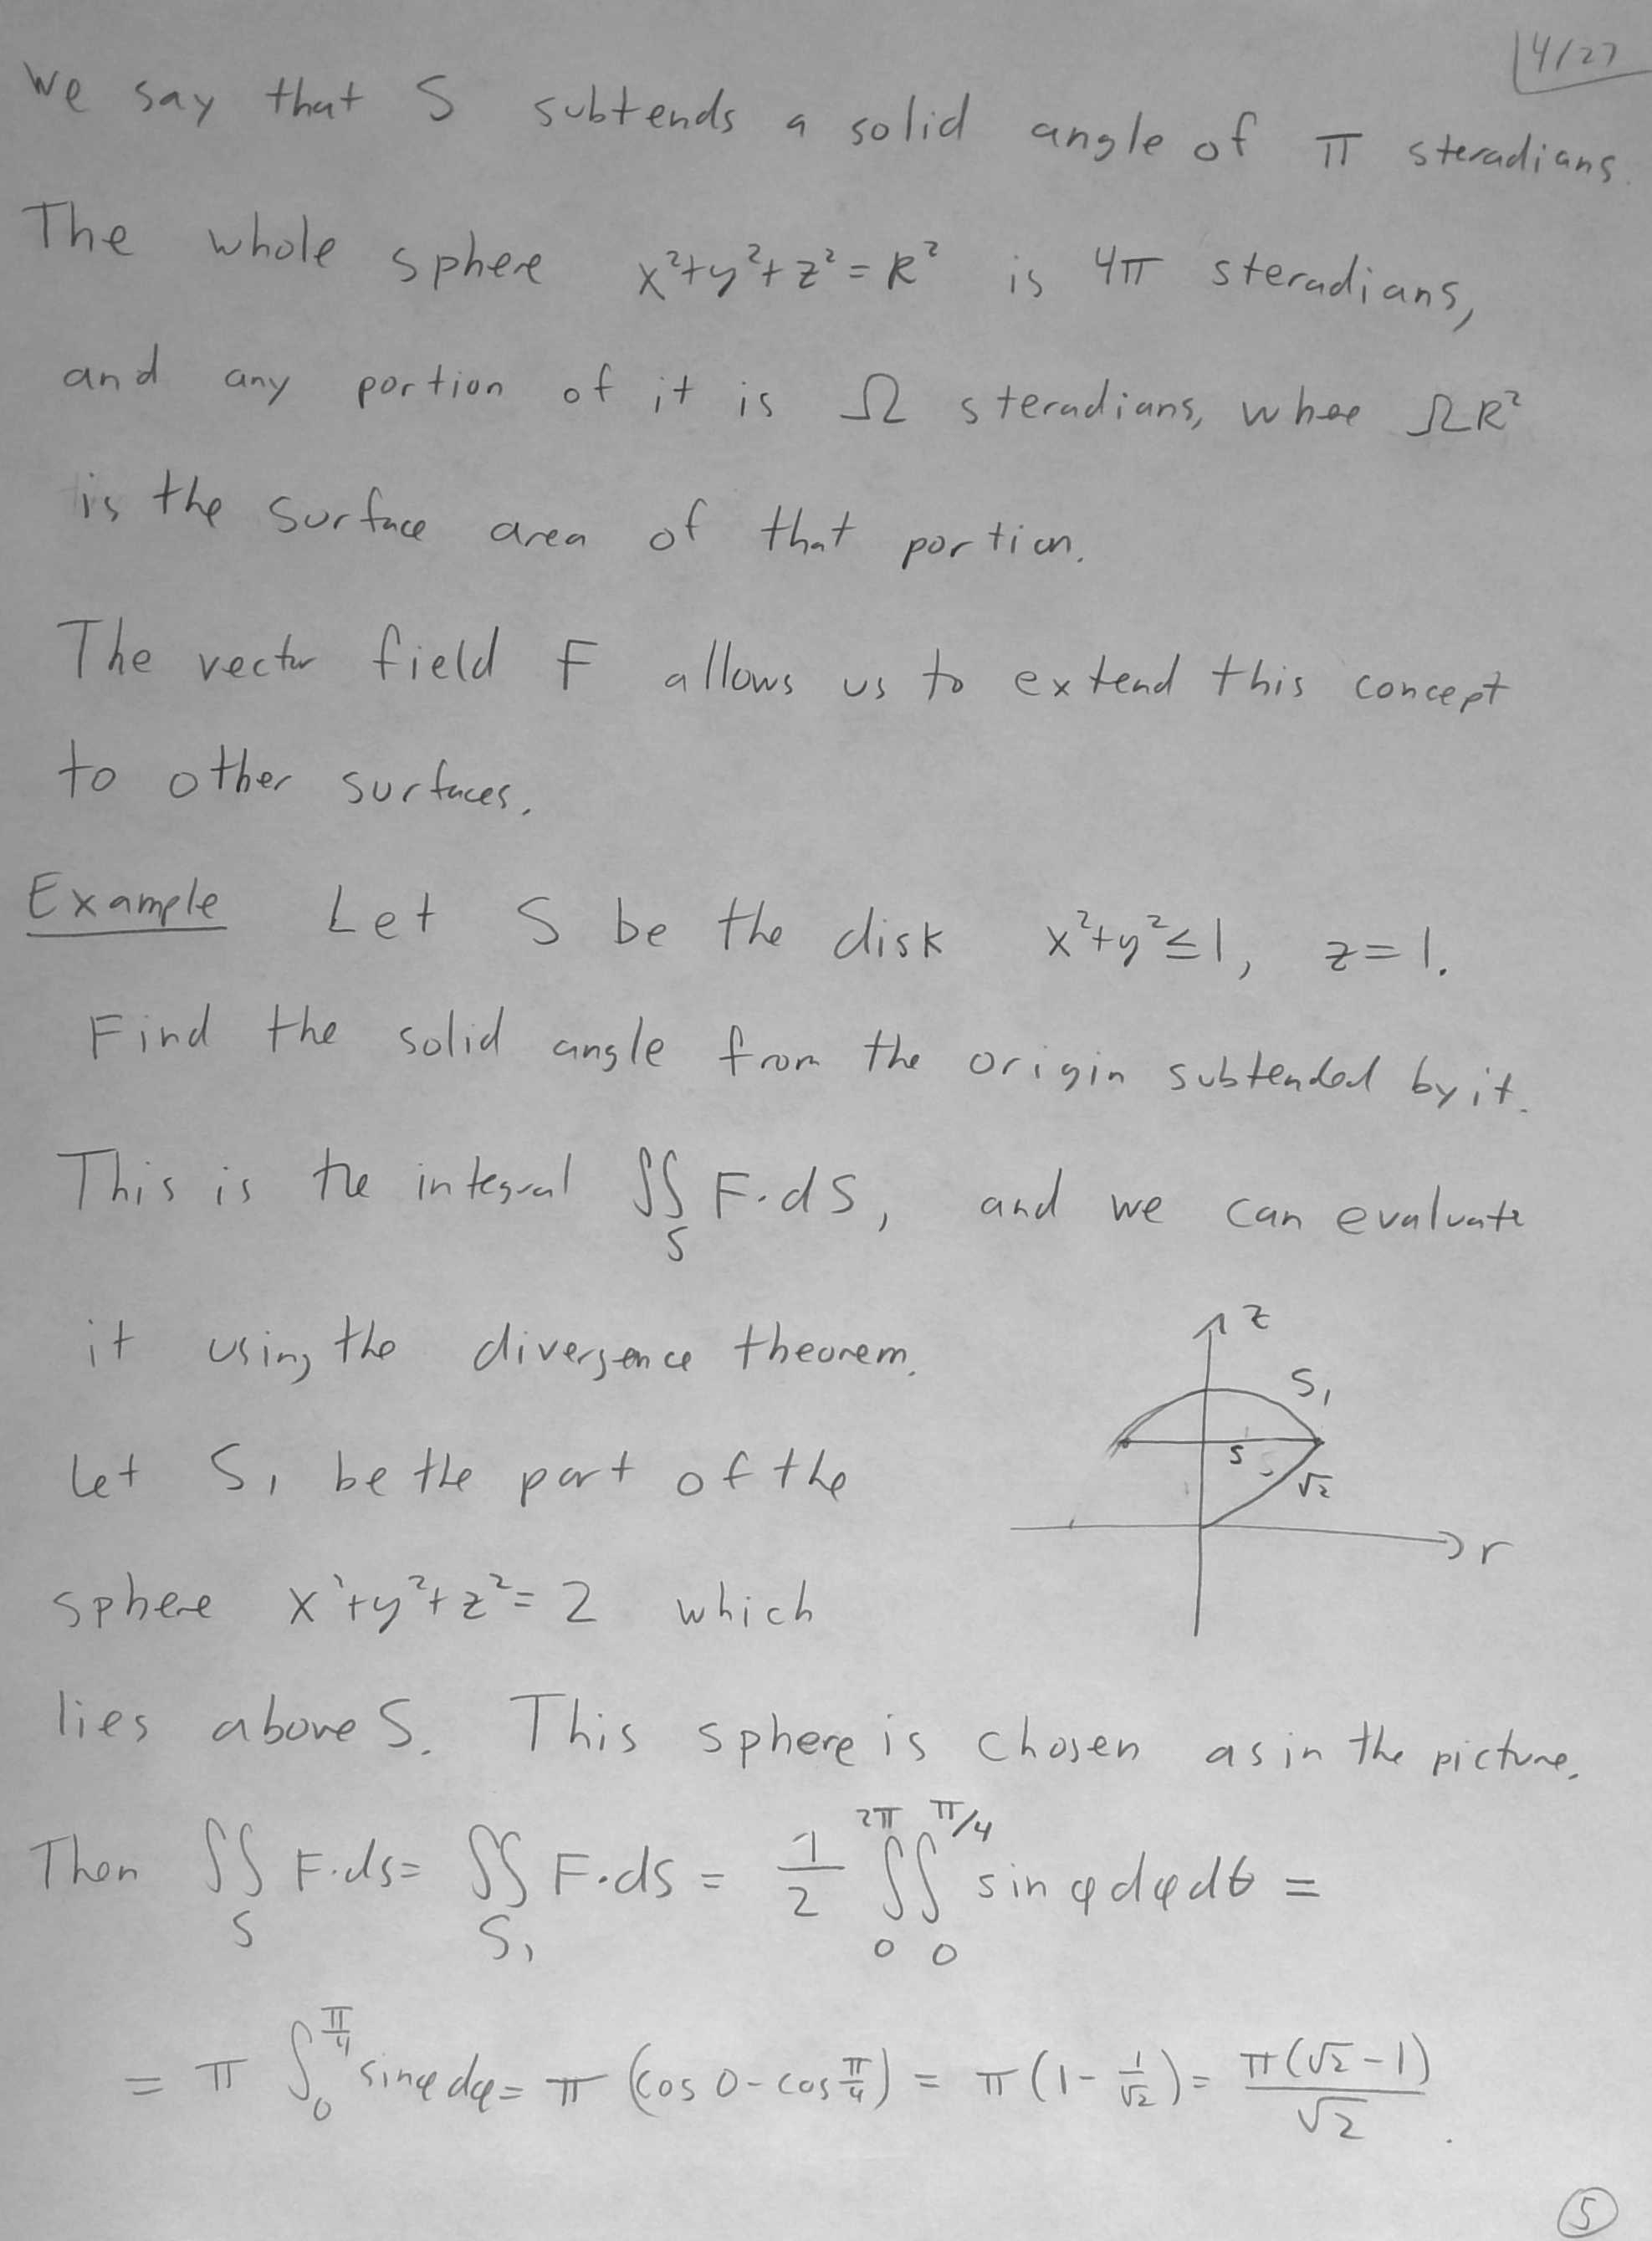 4/27
We say that S subtends a solid angle of π steradians.
The whole sphere x²+y²+z²=R² is 4π steradians,
and any portion of it is Ω steradians, whee ΩR²
is the surface area of that portion.
The vector field F allows us to extend this concept
to other surfaces.
Example Let S be the disk x²+y²≤1, z=1.
Find the solid angle from the origin subtended by it.
This is the integral ∬_S F·dS, and we can evaluate
it using the divergence theorem.
z
S₁
S
√2
r
Let S₁ be the part of the
sphere x²+y²+z²=2 which
lies above S. This sphere is chosen as in the picture.
Then ∬_S F·ds = ∬_S₁ F·ds = 1/2 ∫_0^2π ∫_0^π/4 sin φ dφ dθ =
= π ∫_0^π/4 sin φ dφ = π (cos 0 - cos π/4) = π(1 - 1/√2) = π(√2-1)/√2.
5